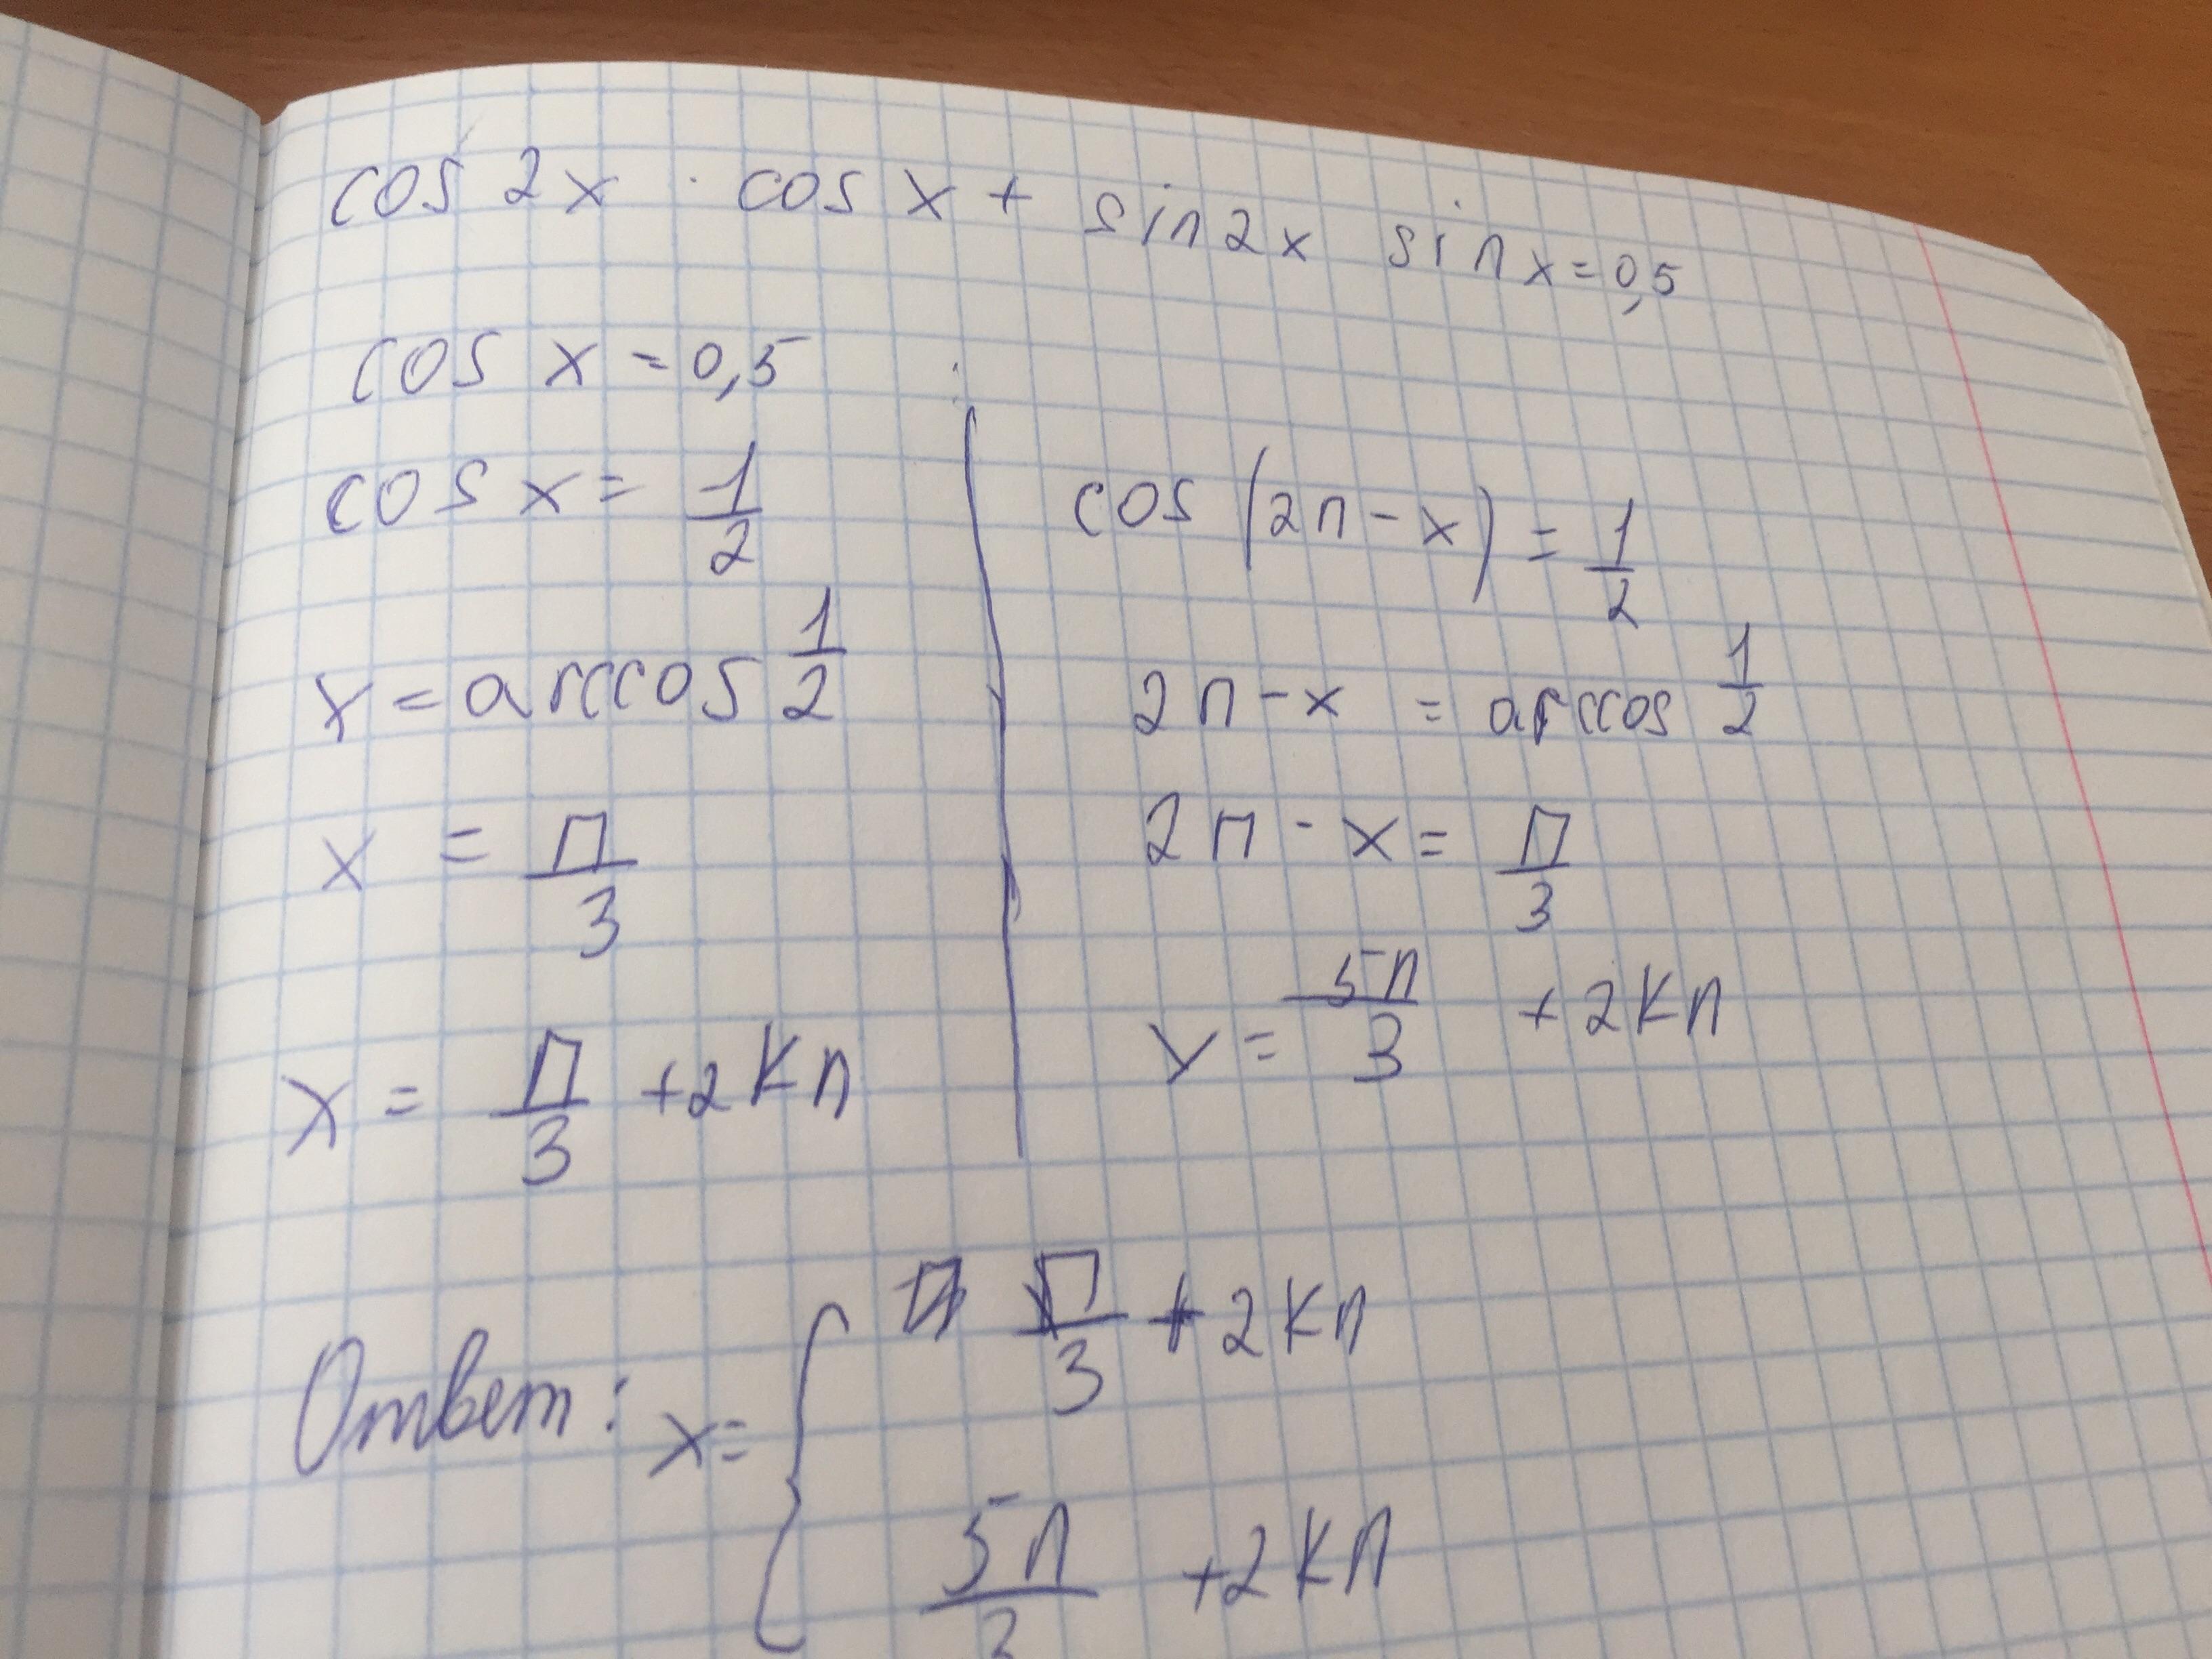 cos 2x · cos x + sin 2x sin x = 0,5
cos x = 0,5
cos x = 1/2
x = arccos 1/2
x = П/3
x = П/3 + 2Kп
cos (2п - x) = 1/2
2п - x = arccos 1/2
2п - x = П/3
x = 5п/3 + 2Kп
Ответ: x = { П/3 + 2Kп
5п/3 + 2Kп